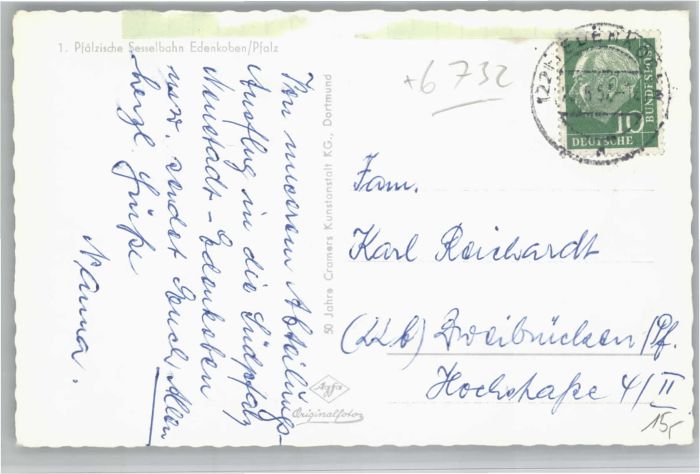 1. Pfälzische Sesselbahn Edenkoben/Pfalz
Von unserem Abteilungs-
Ausflug in die Südpfalz
Neustadt - Edenkoben
usw. sendet Euch Allen
herzl. Grüße
Nanna.
50 Jahre Cramers Kunstanstalt KG., Dortmund
Agfa
Originalfoto
+6 732
EDENKOBEN
10
DEUTSCHE
BUNDESPOST
Fam.
Karl Reichardt
(22b) Zweibrücken/Pf.
Hochstraße 4/II
15,-